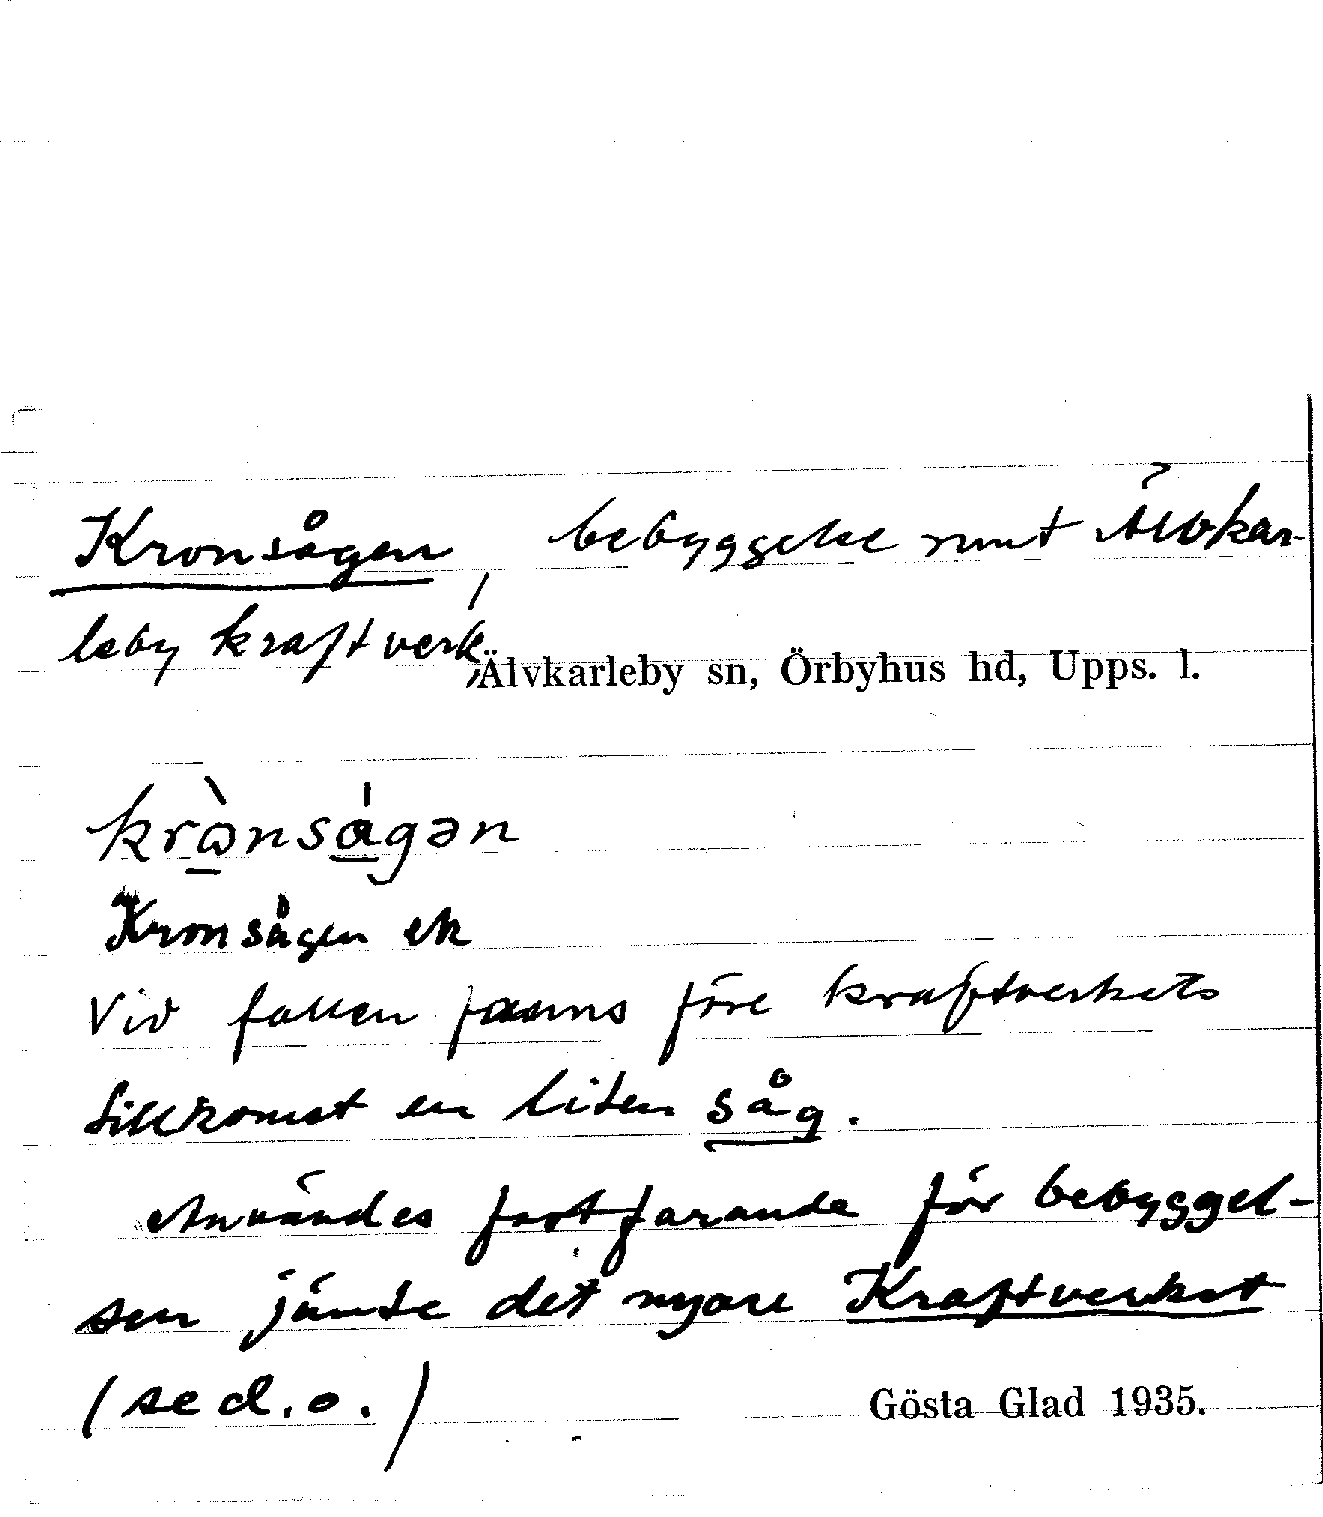 Kronsågen, bebyggelse runt Älvkar-
leby kraftverk,
Älvkarleby sn, Örbyhus hd, Upps. l.
krὼnságən
Kronsågen ek
Vid fallen fanns före kraftverkets
tillkomst en liten såg.
Användes fortfarande för bebyggel-
sen jämte det nyare Kraftverket
(se d.o.)
Gösta Glad 1935.